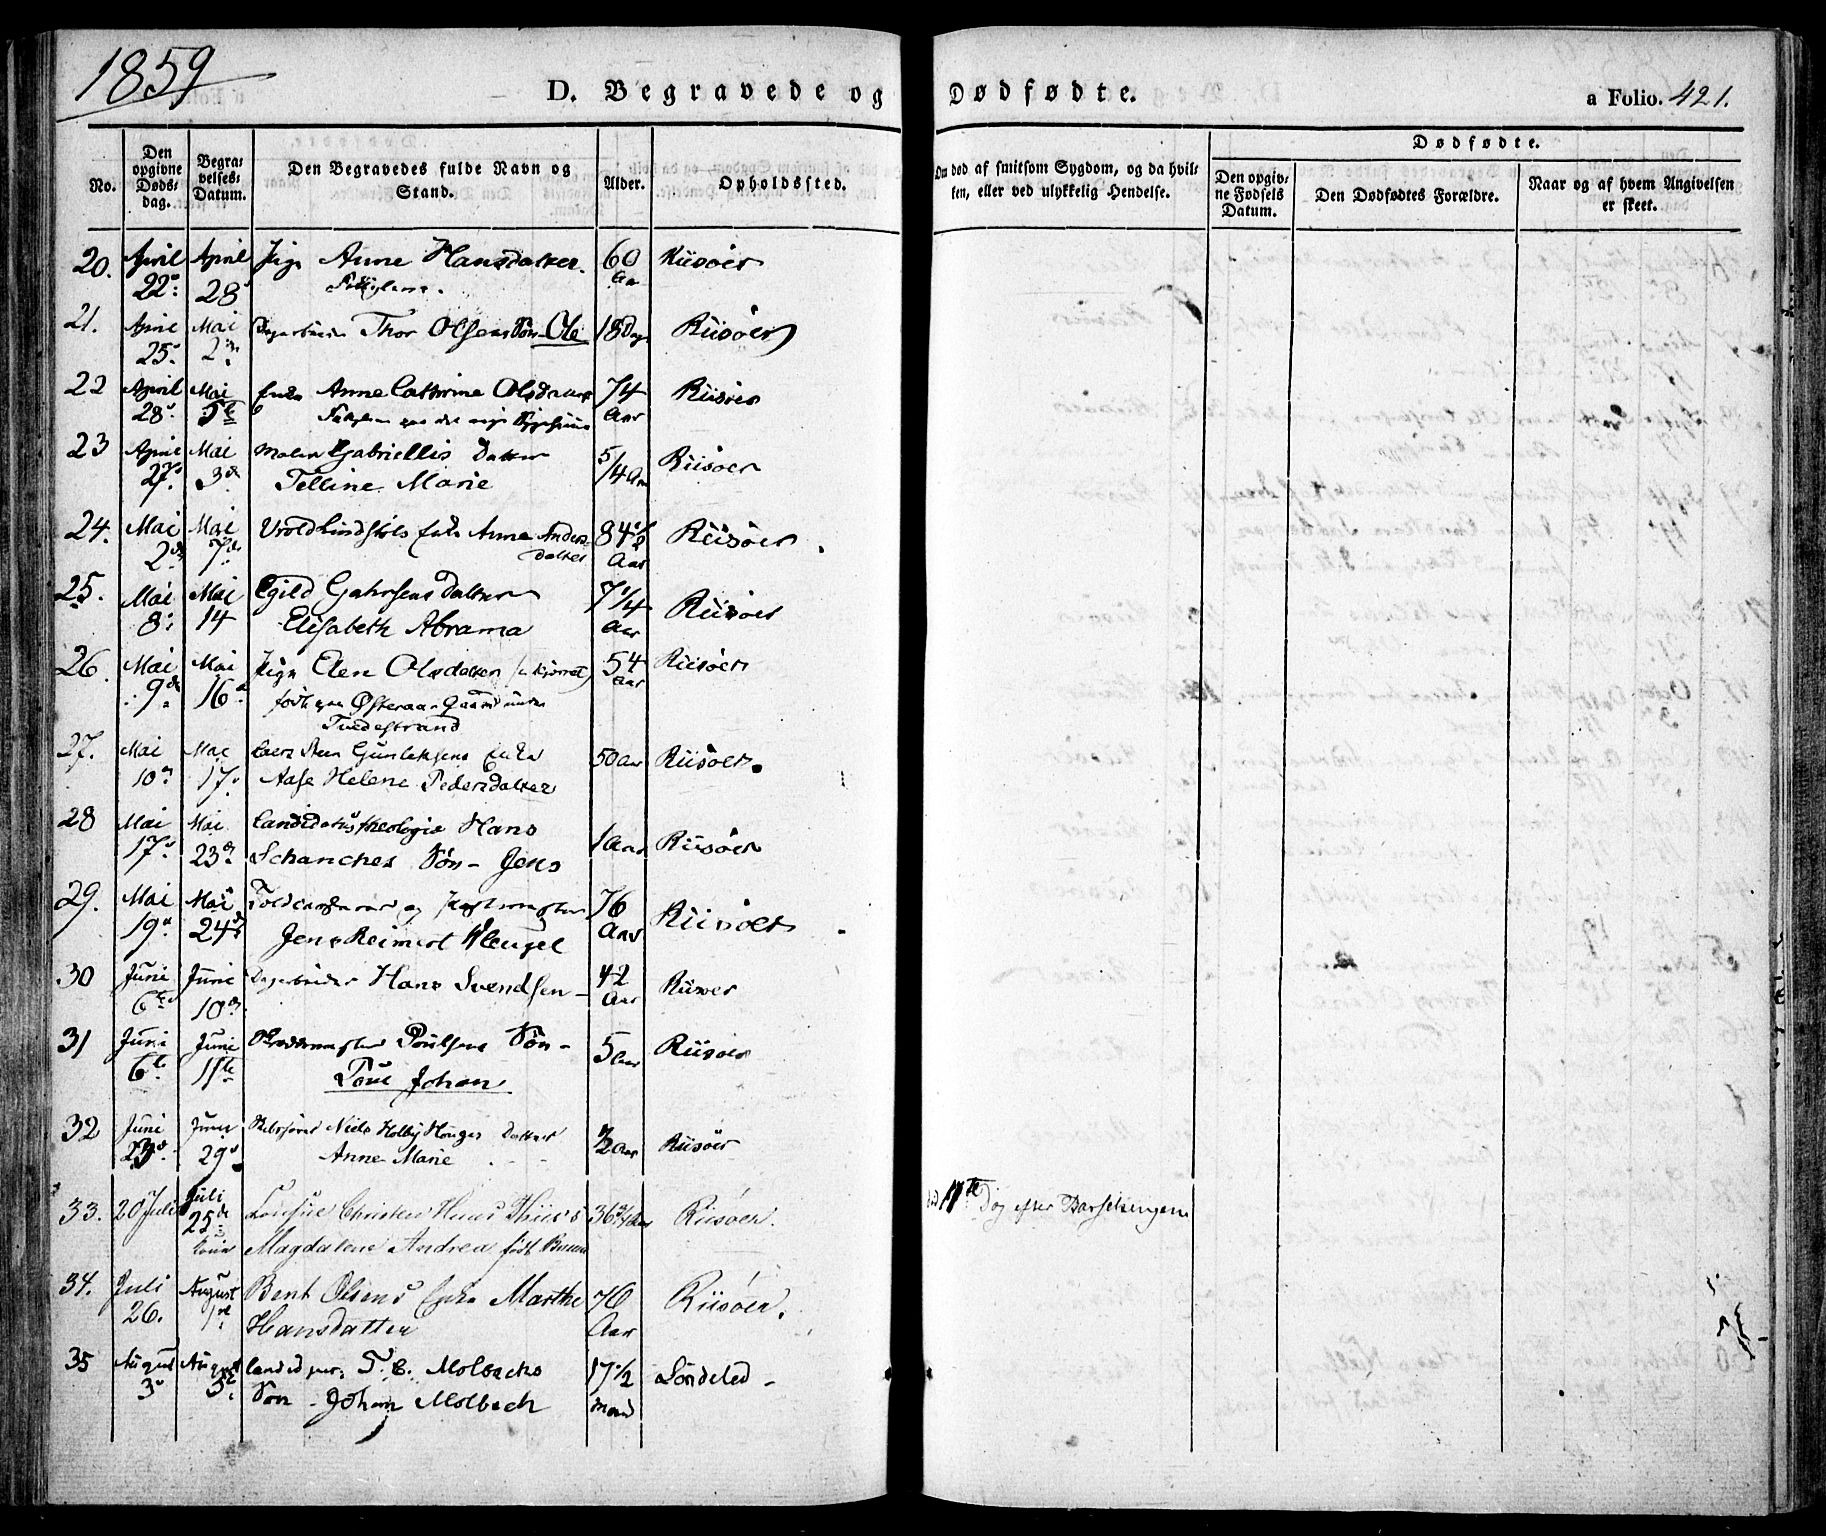 1859
D. Begravede og Dødfødte.
a Folio. 421.
No.
Den opgivne Døds-dag.
Begra-velses-Datum.
Den Begravedes fulde Navn og Stand.
Alder.
Opholdssted.
Om død af smitsom Sygdom, og da hvil-ken, eller ved ulykkelig Hendelse.
Dødfødte.
Den opgiv-ne Fødsels Datum.
Den Dødfødtes Forældre.
Naar og af hvem Angivelsen er skeet.
20. April April Pige Anne Hansdatter. 60 Riisøer
22. 28 Aar
21. April Mai Thor Olsens Søn Ole 18 Dage Riisøer
25. 2
22 April Mai Enke Anne Cathrine Olsdatter 74 Riisøer
28. 5te Aar
23 April Mai Gabriellis Datter 5/4 Aar Riisøer
27. 3 Telline Marie
24. Mai Mai Enke Anne Anders- 84 1/2 Riisøer
2 7 datter Aar
25. Mai Mai Egild Gahrsens Datter 7 1/4 Riisøer
8. 14 Elisabeth Abrama Aar
26. Mai Mai Pige Elen Olsdatter 54 Riisøer
9 16 født paa Østeraa Gaard under Aar
Tvedestrand
27. Mai Mai Gunlaksens Enke 50 Aar Riisøer
10 17 Aase Helene Pedersdatter
28 Mai Mai Candidatus theologiæ Hans 1 Aar Riisøer
17 23 Schanches Søn - Jens
29. Mai Mai og 76 Riisøer
19 24 Jens Reimert Fleugel Aar
30 Juni Juni Dagarbeider Hans Svendsen 42 Riisøer
6te 10 Aar
31 Juni Juni Poulsens Søn - 5 Aar Riisøer
6te 11te Poul Johan
32 Juni Juni Niels Holby Datter 1/2 Aar Riisøer
23 29 Anne Marie
33. 20 Juli Juli Christen Huus 36 3/4 Aar Riisøer.
25 Magdalene Andrea født
død 11te Dag efter Barselsengen
34. Juli August Bent Olsens Enke Marthe 76 Riisøer.
26. 1 Hansdatter Aar
35 August August T. C. Molbachs 17 1/2 Søndeled -
3 5 Søn - Johan Molbech Maaned